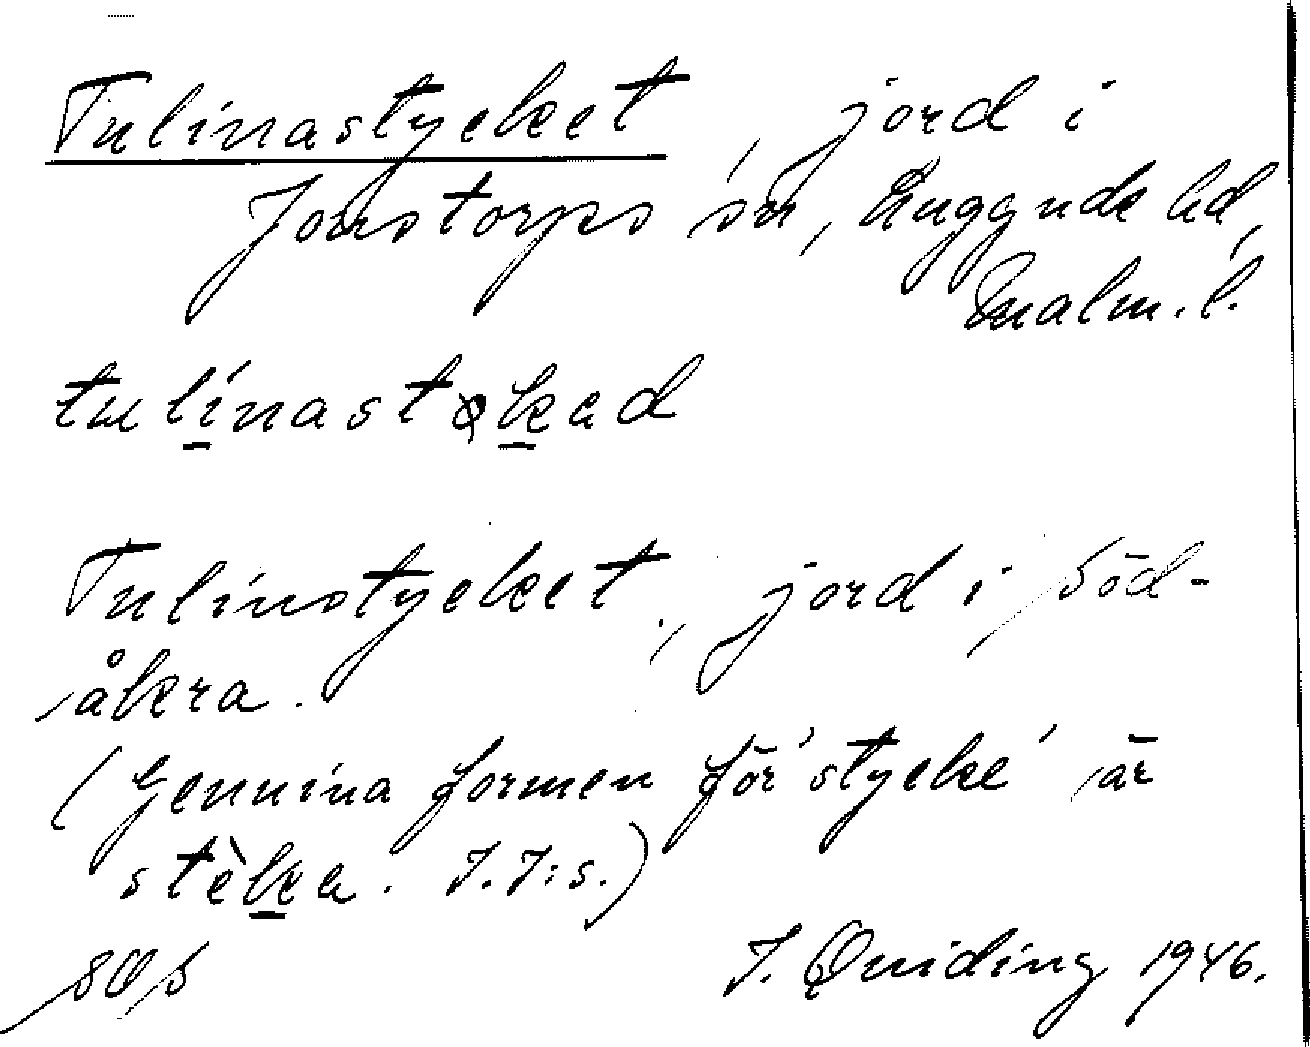 Tulinastycket, jord i
Jonstorps sn, Luggude hd,
Malm. l.
tulinastøkad
Tulinstycket, jord i Söd-
åkra.
(Genuina formen för 'stycke' är
stèka. J.J:s.)
J. Quiding 1946.